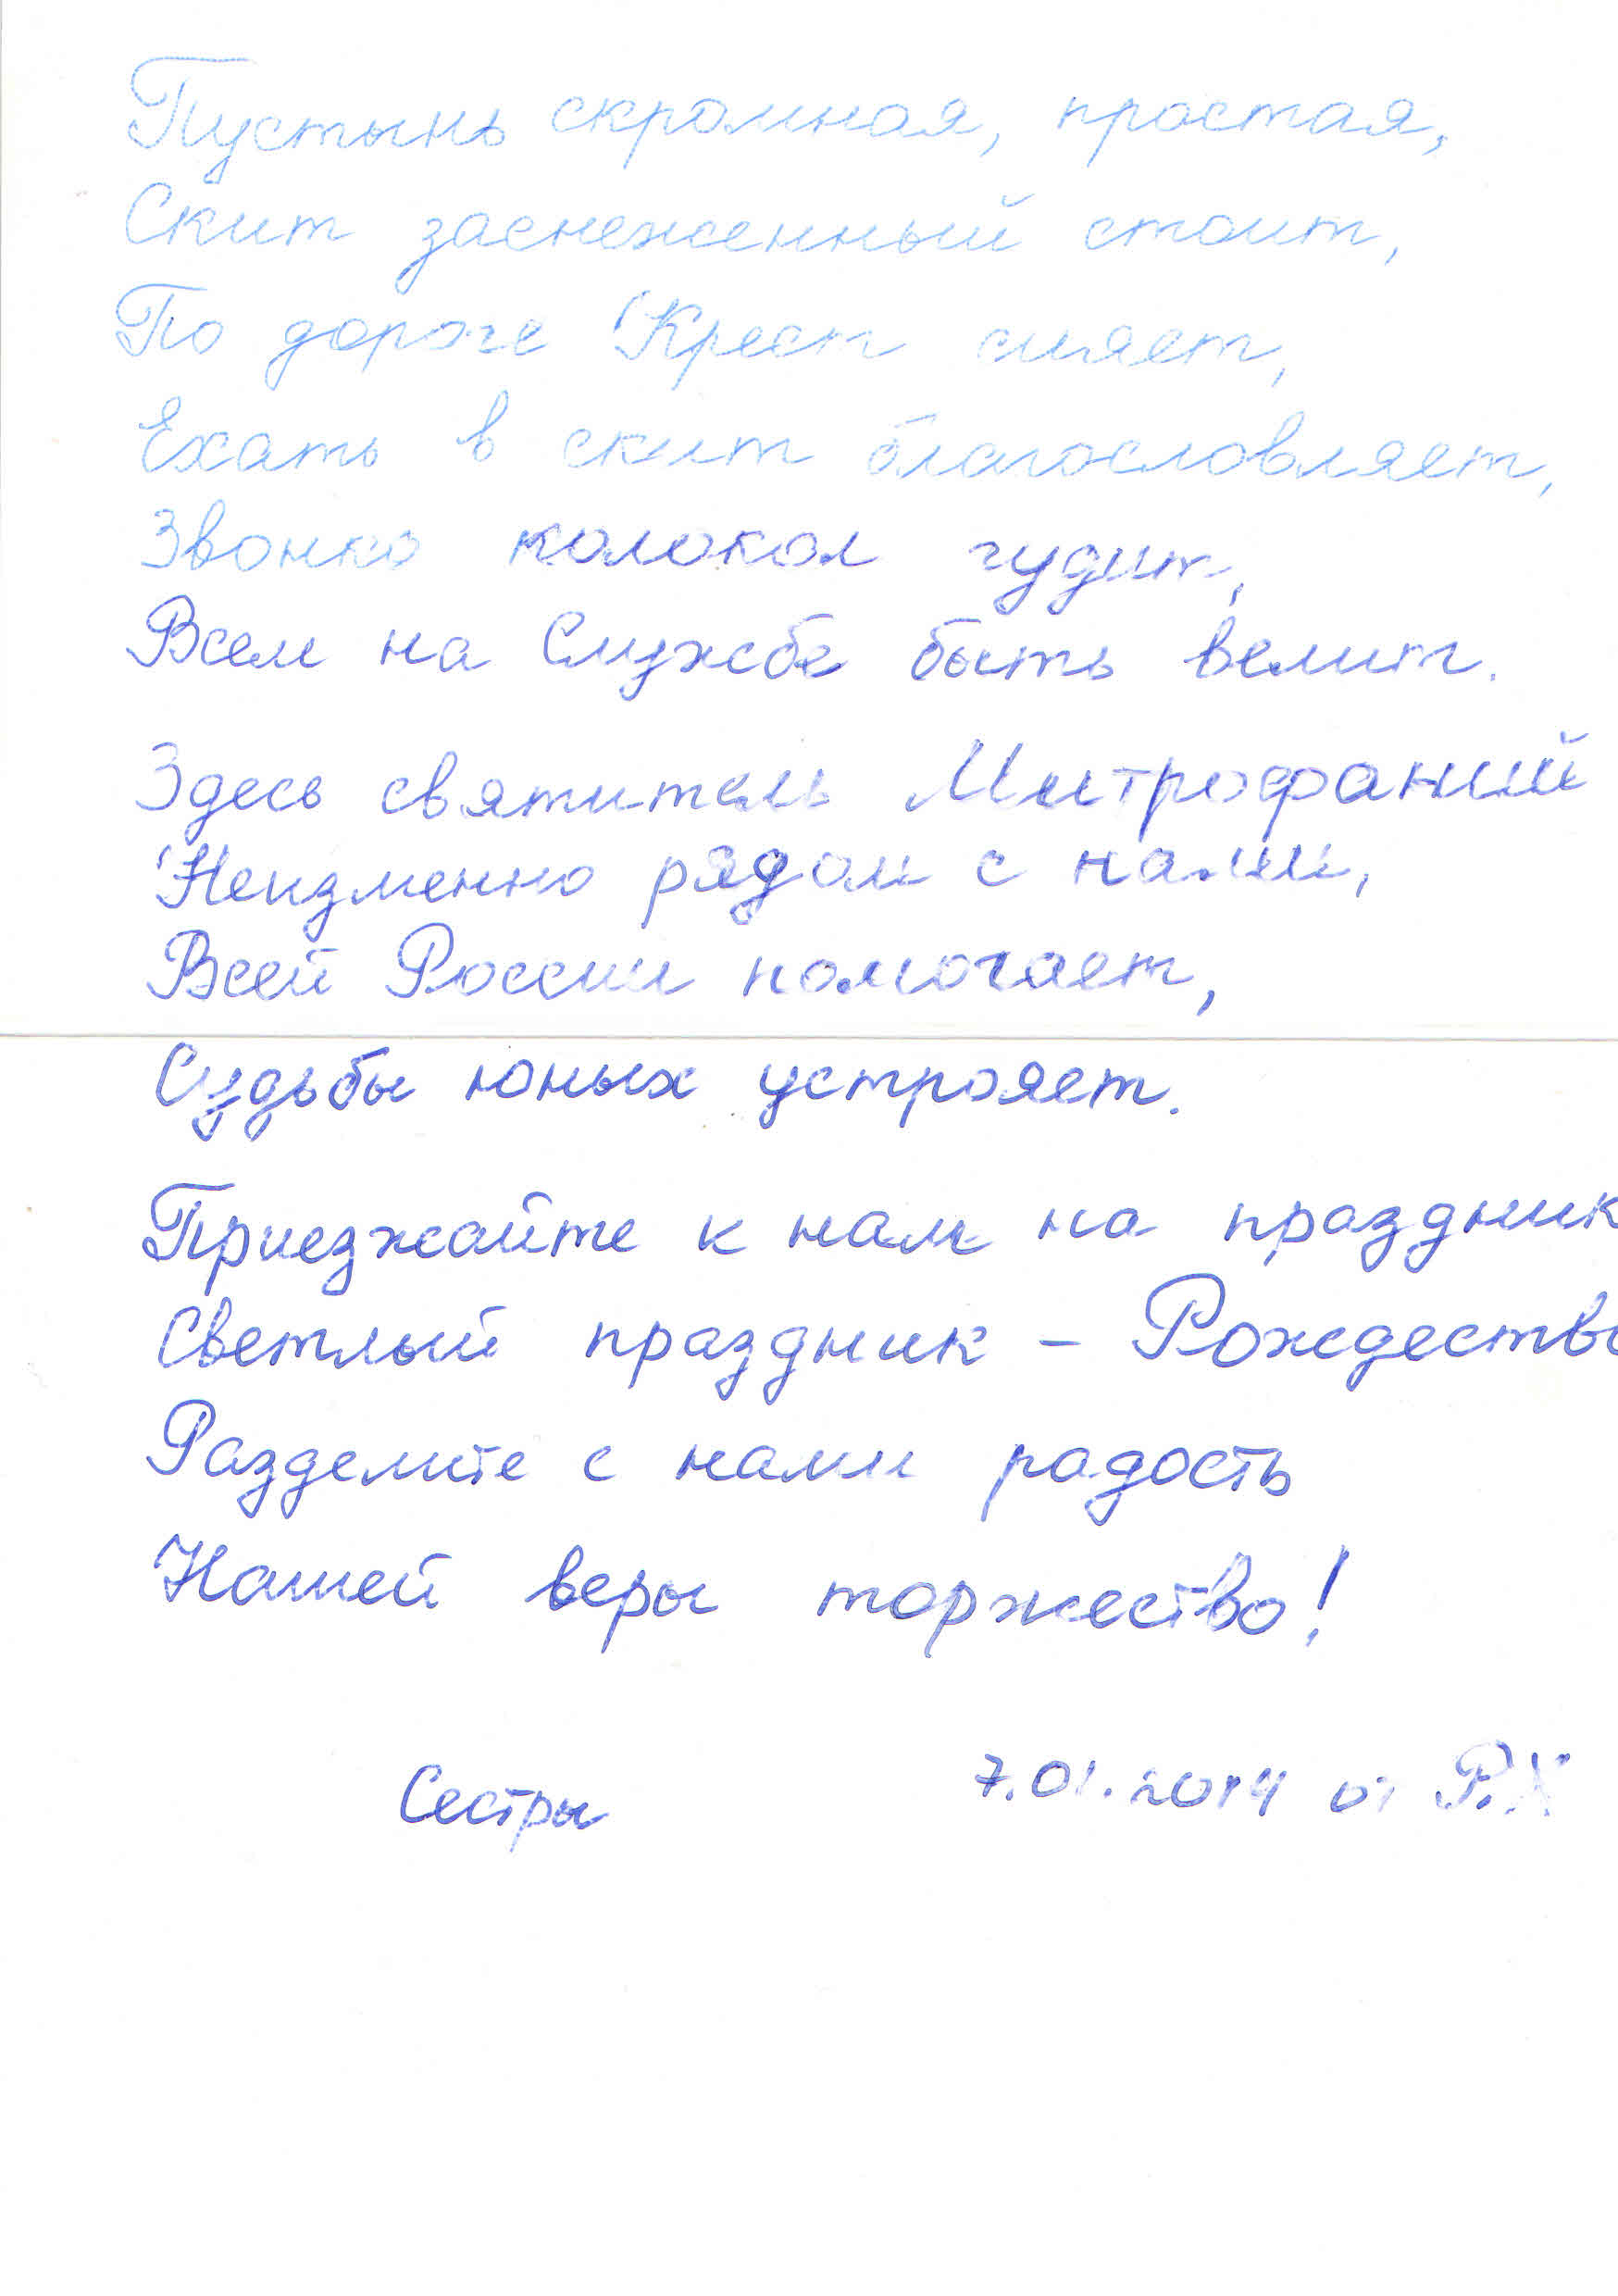 Пустынь скромная, простая,
Скит заснеженный стоит,
По дороге Крест сияет,
Ехать в скит благословляет,
Звонко колокол гудит,
Всем на Службе быть велит.
Здесь святитель Митрофаний
Неизменно рядом с нами,
Всей России помогает,
Судьбы юных устрояет.
Приезжайте к нам на праздник
Светлый праздник – Рождество
Разделите с нами радость
Нашей веры торжество!
Сестры 7.01.2014 от Р.Х